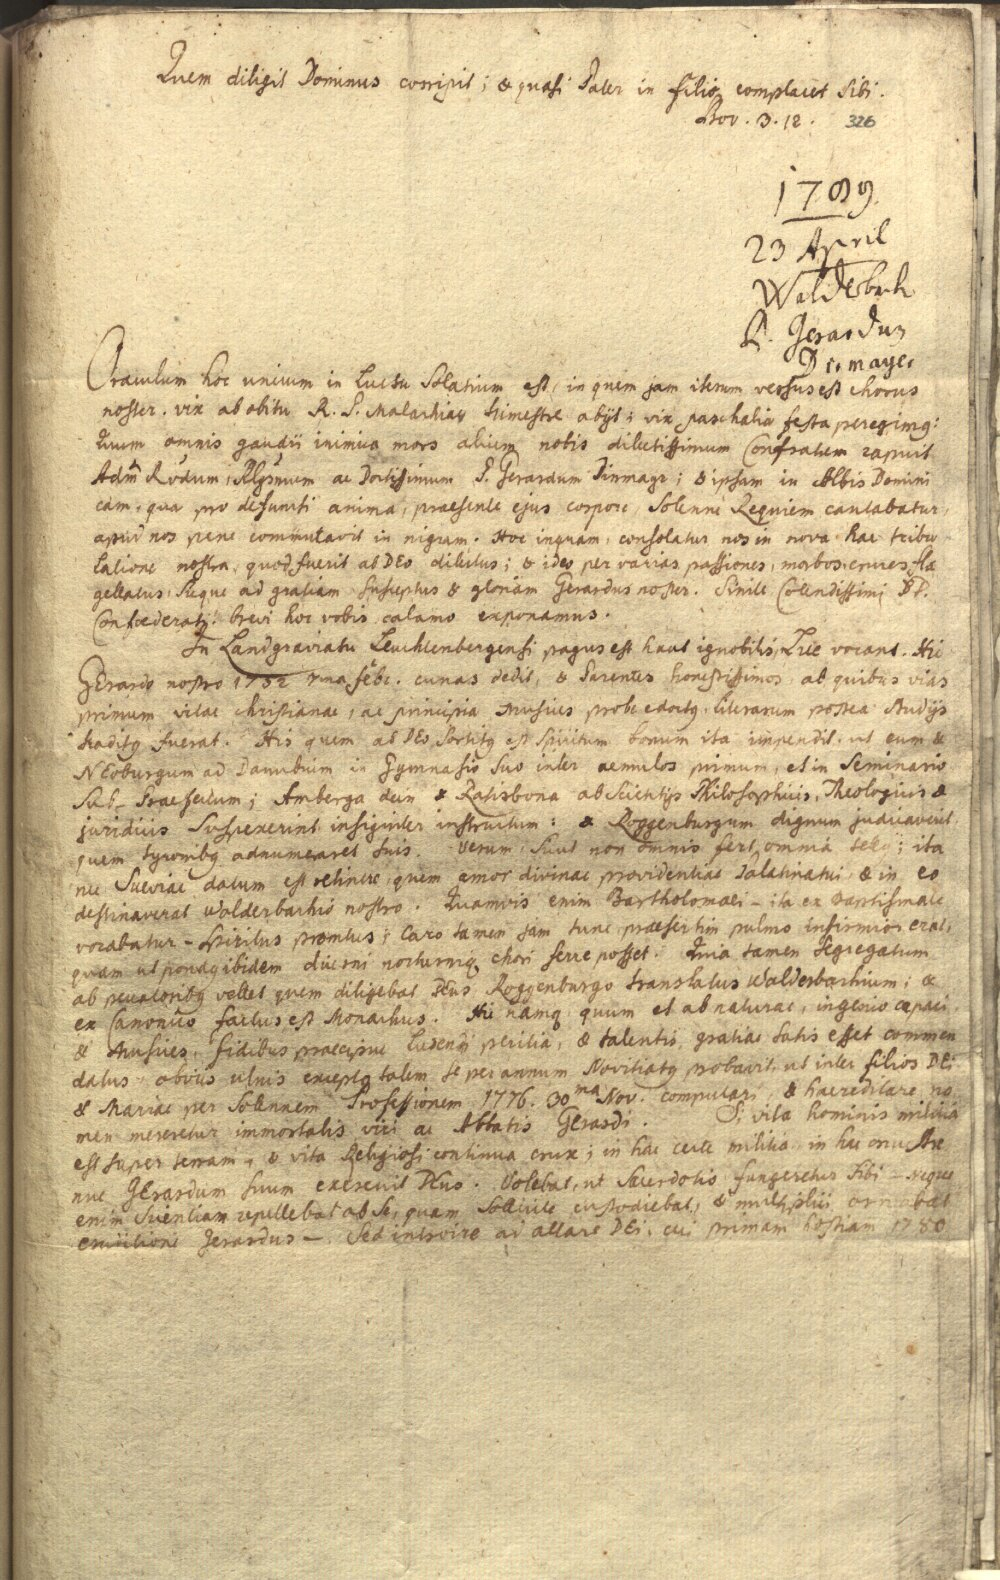 Quem diligit Dominus corripit; & quasi Pater in filio complacet Sibi.
Prov. 3. 12. 326
1789
23 April
Walderbach
P. Gerardus
Dirmayer
Oraculum hoc unicum in Luctu Solatium est, in quem jam iterum versus est chorus
noster. vix ab obitu R. P. Malachiae trimestre abijt; vix paschalia festa peregimus:
Quum omnis gaudii inimica mors alium nobis dilectissimum Confratrem rapuit
Admdm Rvdum, Rlgsmum ac Doctissimum P. Gerardum Dirmayr; & ipsam in Albis Domini
cam, qua pro defuncti anima, praesente ejus corpore, Solenne Requiem cantabatur,
apud nos pene commutavit in nigram. Hoc inquam, consolatur nos in nova hac tribu
latione nostra, quod fuerit a DEo dilectus; & ideo per varias passiones, morbos, cruces fla
gellatus, sicque ad gratiam susceptus & gloriam Gerardus noster. Sinite Colendissimi DD.
Confoederati! brevi hoc vobis calamo exponamus.
In Landgraviatu Leuchtenbergensi pagus est haut ignobilis, Lue vocant. Hic
GErardo nostro 1752 1ma febr. cunas dedit, & Parentes honestissimos, ab quibus vias
primum vitae christianae, ac principia Musices probe edoctq, literarum postea studijs
traditq fuerat. His quem a DEo Sortitq est Spiritum bonum ita impendit, ut eum &
NEoburgum ad Danubium in Gymnasio suo inter aemulos primum, et in Seminario
Sub-Praefectum; Amberga dein & Ratisbona ab Scientijs Philosophicis, Theologicis &
juridicis Suspexerint insigniter instructum: & Roggenburgum dignum judicaverit,
quem tyronibq adnumearet suis. Verum, sicut non omnis fert omnia tellq; ita
nec Sueviae datum est retinere, quem amor divinae providentiae Palatinatui & in eo
destinaverat Walderbachio nostro. Quamvis enim Bartholomaei – ita ex baptismate
vocabatur – Spiritus promtus; Caro tamen jam tunc, praesertim pulmo infirmior erat,
quam ut pondq ibidem diurni nocturniq chori ferre posset. Quia tamen Segregatum
ab peccatoribq vellet quem diligebat DEus Roggenburgo translatus Walderbachium; &
ex Canonico factus est Monachus. Hic namq quum et ab naturae, ingenio capaci
& Musices, fidibus praecipue Ludendi peritia, & talentis, gratiae satis esset commen
datus, obviis ulnis exceptq talem se per annum Novitiatq probavit, ut inter filios DEi
& Mariae per Solennem Professionem 1776. 30ma Nov. computari, & haereditare no
men mereretur immortalis viri ac Abbatis Gerardi. Si vita hominis militia
est super terram, & vita Religiosi continua crux; in hac certe militia, in hac cruce stre
nue GErardum suum exercuit DEus. Volebat, ut Sacerdotis fungeretur sibi – neque
enim Scientiam repellebat ab se, quam sollicite custodiebat, & multiplici ornabat
eruditione Gerardus –. Sed introire ad altare DEi, cui primam hostiam 1780